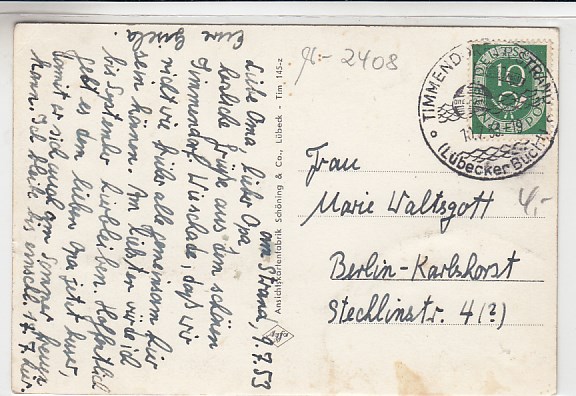 am Strand, 9.7.53
Liebe Oma, lieber Opa,
herzliche Grüße aus dem schönen
Timmendorf. Wie schade, daß wir
nicht wie früher alle gemeinsam hier
sein können. Am liebsten würde ich
bis September hierbleiben. Hoffentlich
geht es dem lieben Opa jetzt besser,
damit er sich auch am Sommer freuen
kann. Ich bleibe bis einschl. 17.7. hier.
Eure Gisela
Ansichtskartenfabrik Schöning & Co., Lübeck Tim 145-z
2408
TIMMENDORFER STRAND
(Lübecker Bucht)
DEUTSCHE POST
10
Frau
Marie Waltsgott
Berlin-Karlshorst
Stechlinstr. 4(?)
4,-